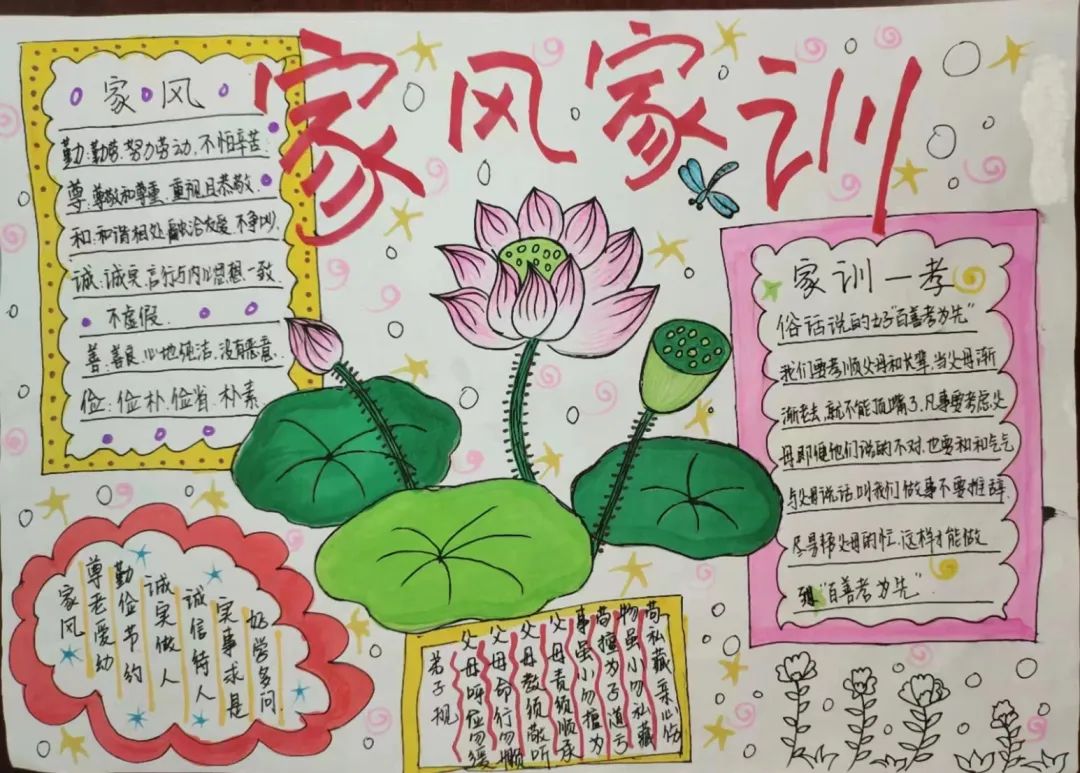 家风家训
家风
勤:勤劳.努力劳动,不怕辛苦.
尊:尊敬和尊重.重视且恭敬.
和:和谐相处.融洽友爱.不争吵.
诚:诚实.言行与内心思想一致.
不虚假.
善:善良.心地纯洁.没有恶意.
俭:俭朴.俭省.朴素
家训一孝
俗话说的好"百善孝为先"
我们要孝顺父母和长辈,当父母渐
渐老去,就不能顶嘴了.凡事要考虑父
母即便他们说的不对.也要和和气气
与父母说话叫我们做事不要推辞.
尽量帮父母的忙.这样才能做
到"百善孝为先"
家风
尊老爱幼
勤俭节约
诚实做人
诚信待人
实事求是
好学多问.
弟子规
父母呼应勿缓
父母命行勿懒
父母教须敬听
父母责须顺承
事虽小勿擅为
苟擅为子道亏
物虽小勿私藏
苟私藏亲心伤